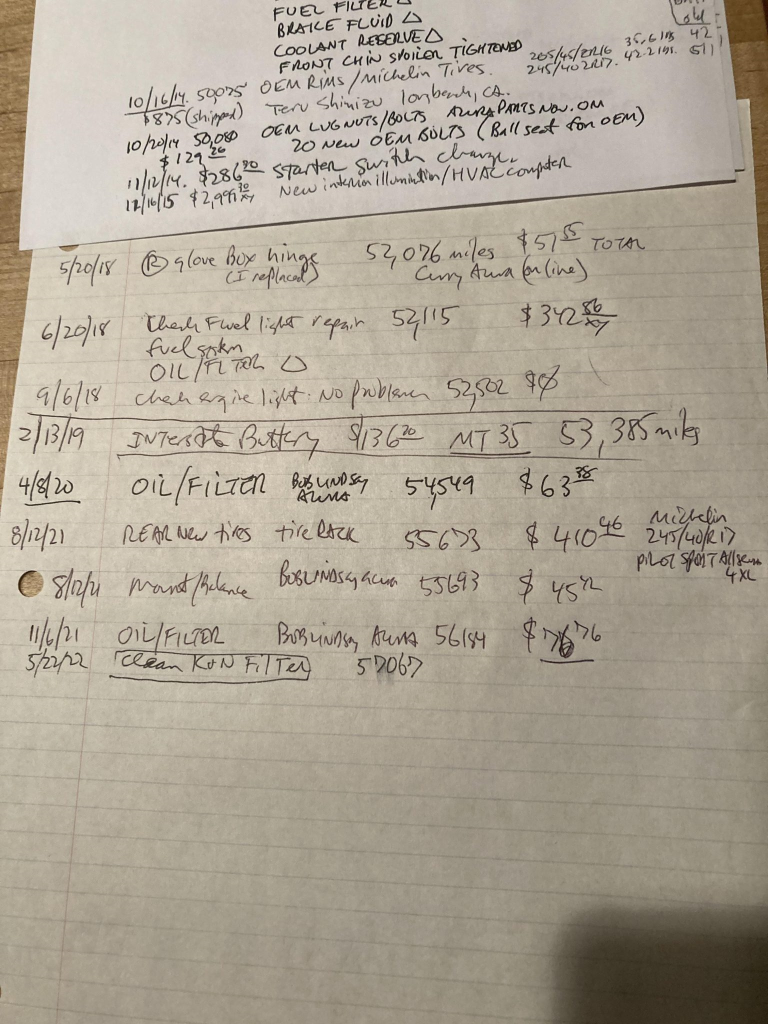 FUEL FILTER △
BRAKE FLUID △
COOLANT RESERVE △
FRONT CHIN SPOILER TIGHTENED
old
205/45/ZR16 35.6 lbs 42
245/40ZR17. 42.2 lbs. 51
10/16/14. 50,075 OEM Rims/Michelin Tires.
$875 (shipped) Teru Shimizu longbeach, CA.
10/20/14 50,080 OEM LUG NUTS/BOLTS AcuraPartsNow.com
$129 26 20 NEW OEM BOLTS (Ball seat for OEM)
11/12/14. $286 90 Starter switch change.
12/16/15 $2,991 30/xx New interior illumination/HVAC computer
5/20/18 Ⓡ glove Box hinge 52,076 miles $51 55 TOTAL
(I replaced) Curry Acura (online)
6/20/18 Check Fuel light repair 52,115 $342 86/xx
fuel system
OIL/FLTER △
9/6/18 check engine light: No problem 52,502 $0
2/13/19 INTERState Battery $136 20 MT 35 53,385 miles
4/8/20 OIL/FILTER BOB LINDSAY ACURA 54,549 $63 38
8/12/21 REAR New tires tire RACK 55673 $410 46 Michelin
245/40/R17
PILOT SPORT All season
4 XL
8/12/21 Mount/Balance BOB LINDSay acura 55693 $45 72
11/6/21 OIL/FILTER BOB Lindsay ACURA 56184 $76 76
5/22/22 Clean K&N FilTer 57067